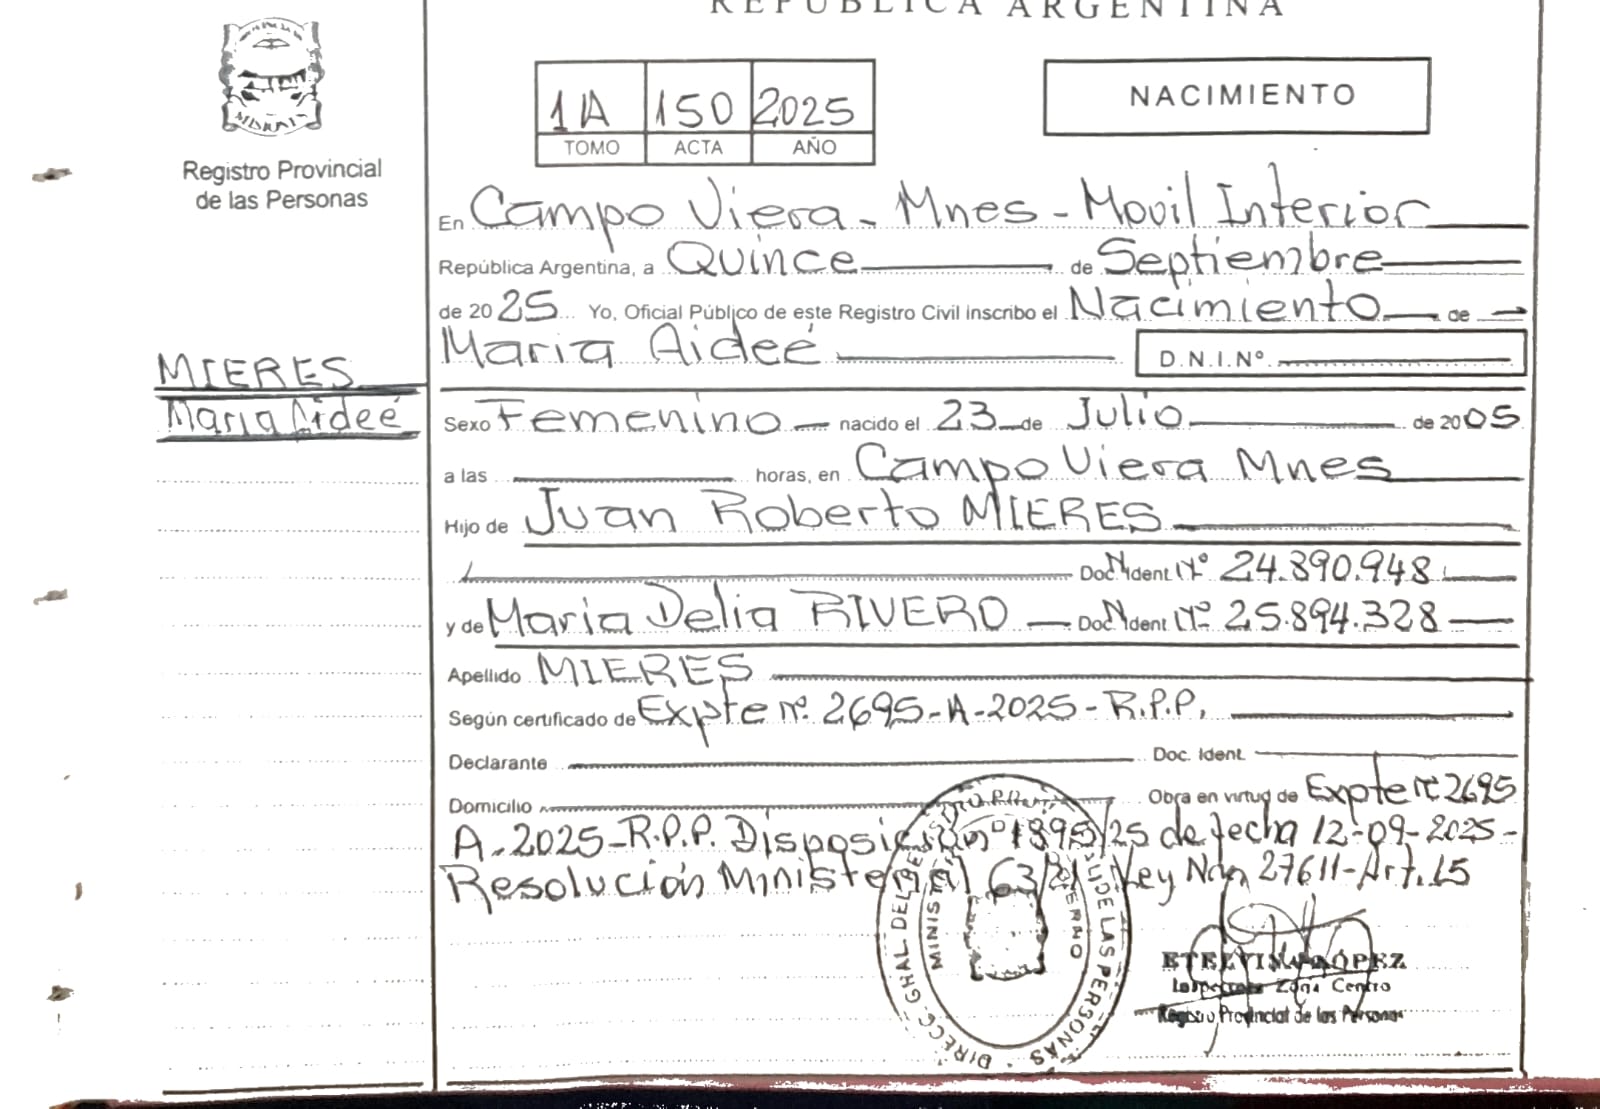 REPUBLICA ARGENTINA
MISIONES
Registro Provincial
de las Personas
1A 150 2025
TOMO ACTA AÑO
NACIMIENTO
En Campo Viera - Mnes - Movil Interior
República Argentina, a Quince de Septiembre
de 2025 Yo, Oficial Público de este Registro Civil inscribo el Nacimiento de
Maria Aideé D.N.I.Nº
MIERES
Maria Aideé
Sexo Femenino nacido el 23 de Julio de 2005
a las horas, en Campo Viera Mnes
Hijo de Juan Roberto MIERES
Doc. Ident Nº 24.890.948
y de Maria Delia RIVERO Doc. Ident Nº 25.894.328
Apellido MIERES
Según certificado de Expte nº. 2695-A-2025-R.P.P.
Declarante Doc. Ident.
Domicilio Obra en virtud de Expte nº 2695
A-2025-R.P.P. Disposición nº 1895/25 de fecha 12-09-2025-
Resolución Ministerial Ley Nan 27611-Art.15
DIRECC. GRAL. DEL REGISTRO PROV. DE LAS PERSONAS
ETELVINA LÓPEZ
Inspectora Zona Centro
Registro Provincial de las Personas